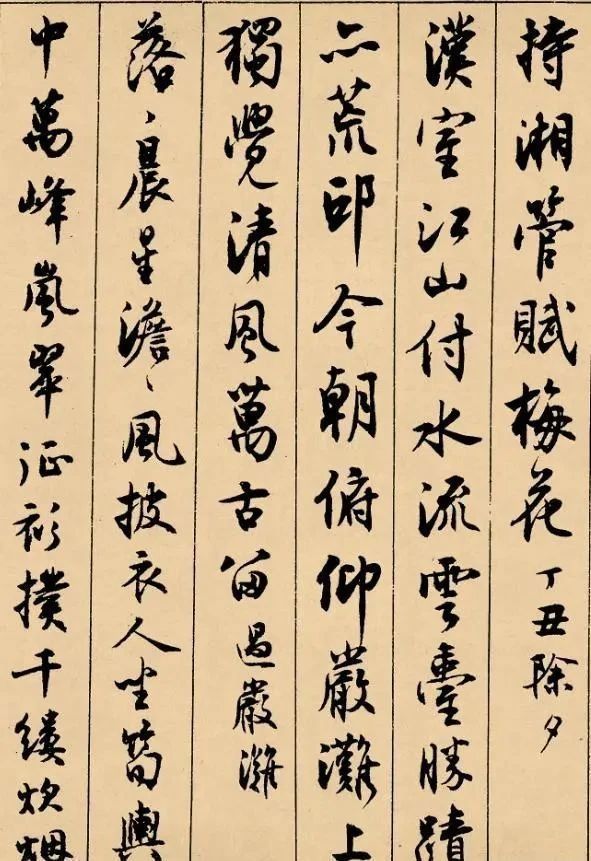 持湘管賦梅花丁丑除夕
漢室江山付水流雲臺勝蹟
亦荒邱今朝俯仰嚴灘上
獨覺清風萬古留過嚴灘
落〻晨星澹〻風披衣人坐筍輿
中萬峰嵐翠征衫撲千縷炊烟